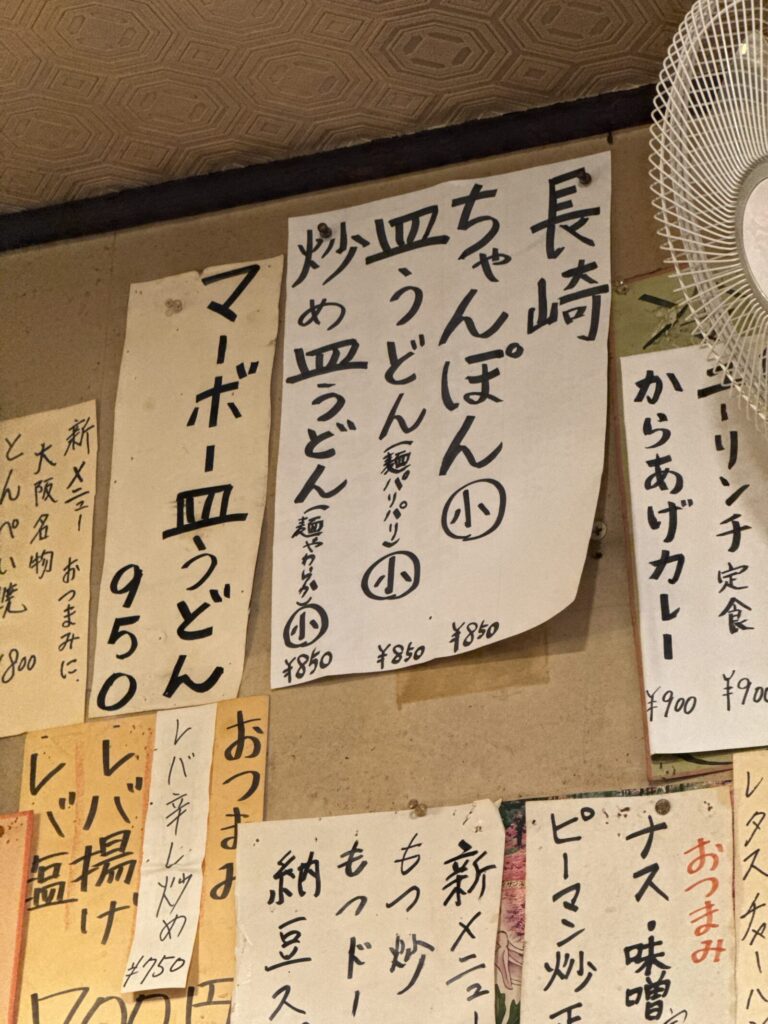 長崎
ちゃんぽん 小 ¥850
皿うどん(麺パリパリ) 小 ¥850
炒め皿うどん(麺やわらか) 小 ¥850
マーボー皿うどん
950
新メニュー おつまみに
大阪名物
とんぺい焼
¥800
ーリンチ定食
¥900
からあげカレー
¥900
おつまみ
レバ辛し炒め
¥750
レバ揚げ
レバ塩
700円
新メニュー
もつ炒
もつドー
納豆ス
おつまみ
ナス・味噌
ピーマン炒
レタスチャーハン